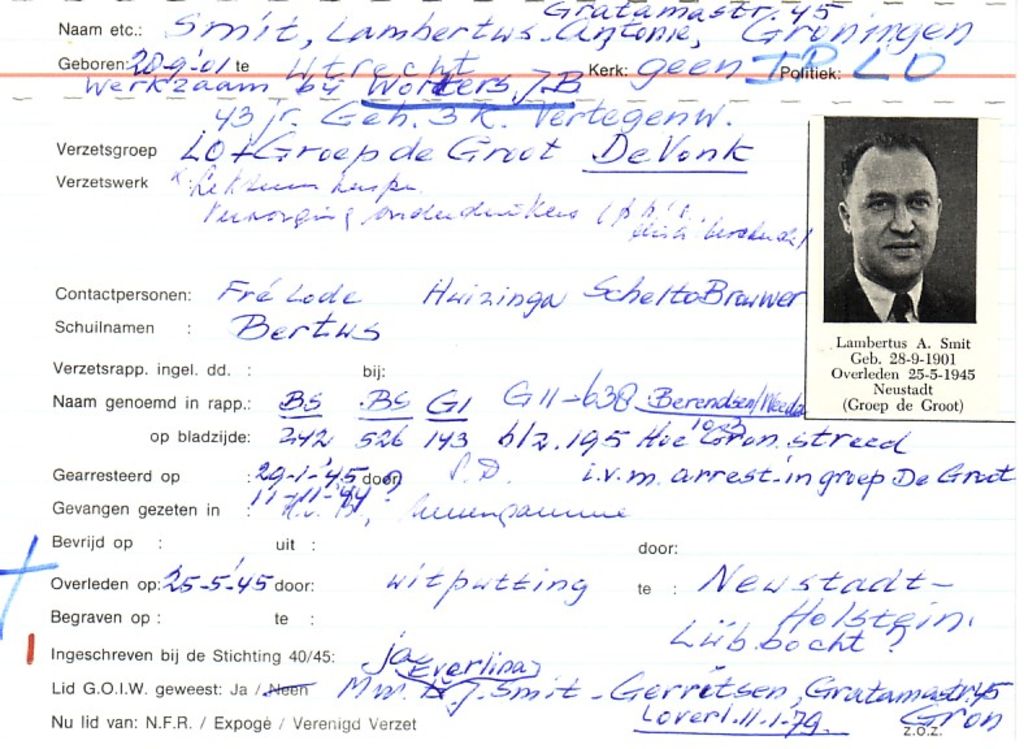 Gratamastr. 45
Naam etc.: Smit, Lambertus Antonie, Groningen
Geboren: 28-9-'01 te Utrecht Kerk: geen I.P. Politiek: LO
Werkzaam bij Wolters, JB
43 jr. Geh. 3 K. Vertegenw.
Verzetsgroep LO + Groep de Groot De Vonk
Verzetswerk
Verzorging onderduikers
Contactpersonen: Fré Lode Huizinga Schelto Brouwer
Schuilnamen : Bertus
Verzetsrapp. ingel. dd. : bij:
Naam genoemd in rapp.: BS BS G1 G11-638 Berendsen/Weeda
op bladzijde: 242 526 143 blz. 195 Hoe Gron. streed
Gearresteerd op : 29-1-'45 door ? S.D. i.v.m. arrest. in groep De Groot
11-11-'44
Gevangen gezeten in : H.v.B., Neuengamme
Bevrijd op : uit : door:
Overleden op: 25-5-'45 door: uitputting te : Neustadt-
Holstein.
Begraven op : te :
Lübbocht ?
Ingeschreven bij de Stichting 40/45: ja
Everlina
Lid G.O.I.W. geweest: Ja / Neen Mw. J. Smit-Gerritsen, Gratamastr. 45
Nu lid van: N.F.R. / Expogé / Verenigd Verzet Gron
overl. 11-1-79
z.o.z.
Lambertus A. Smit
Geb. 28-9-1901
Overleden 25-5-1945
Neustadt
(Groep de Groot)